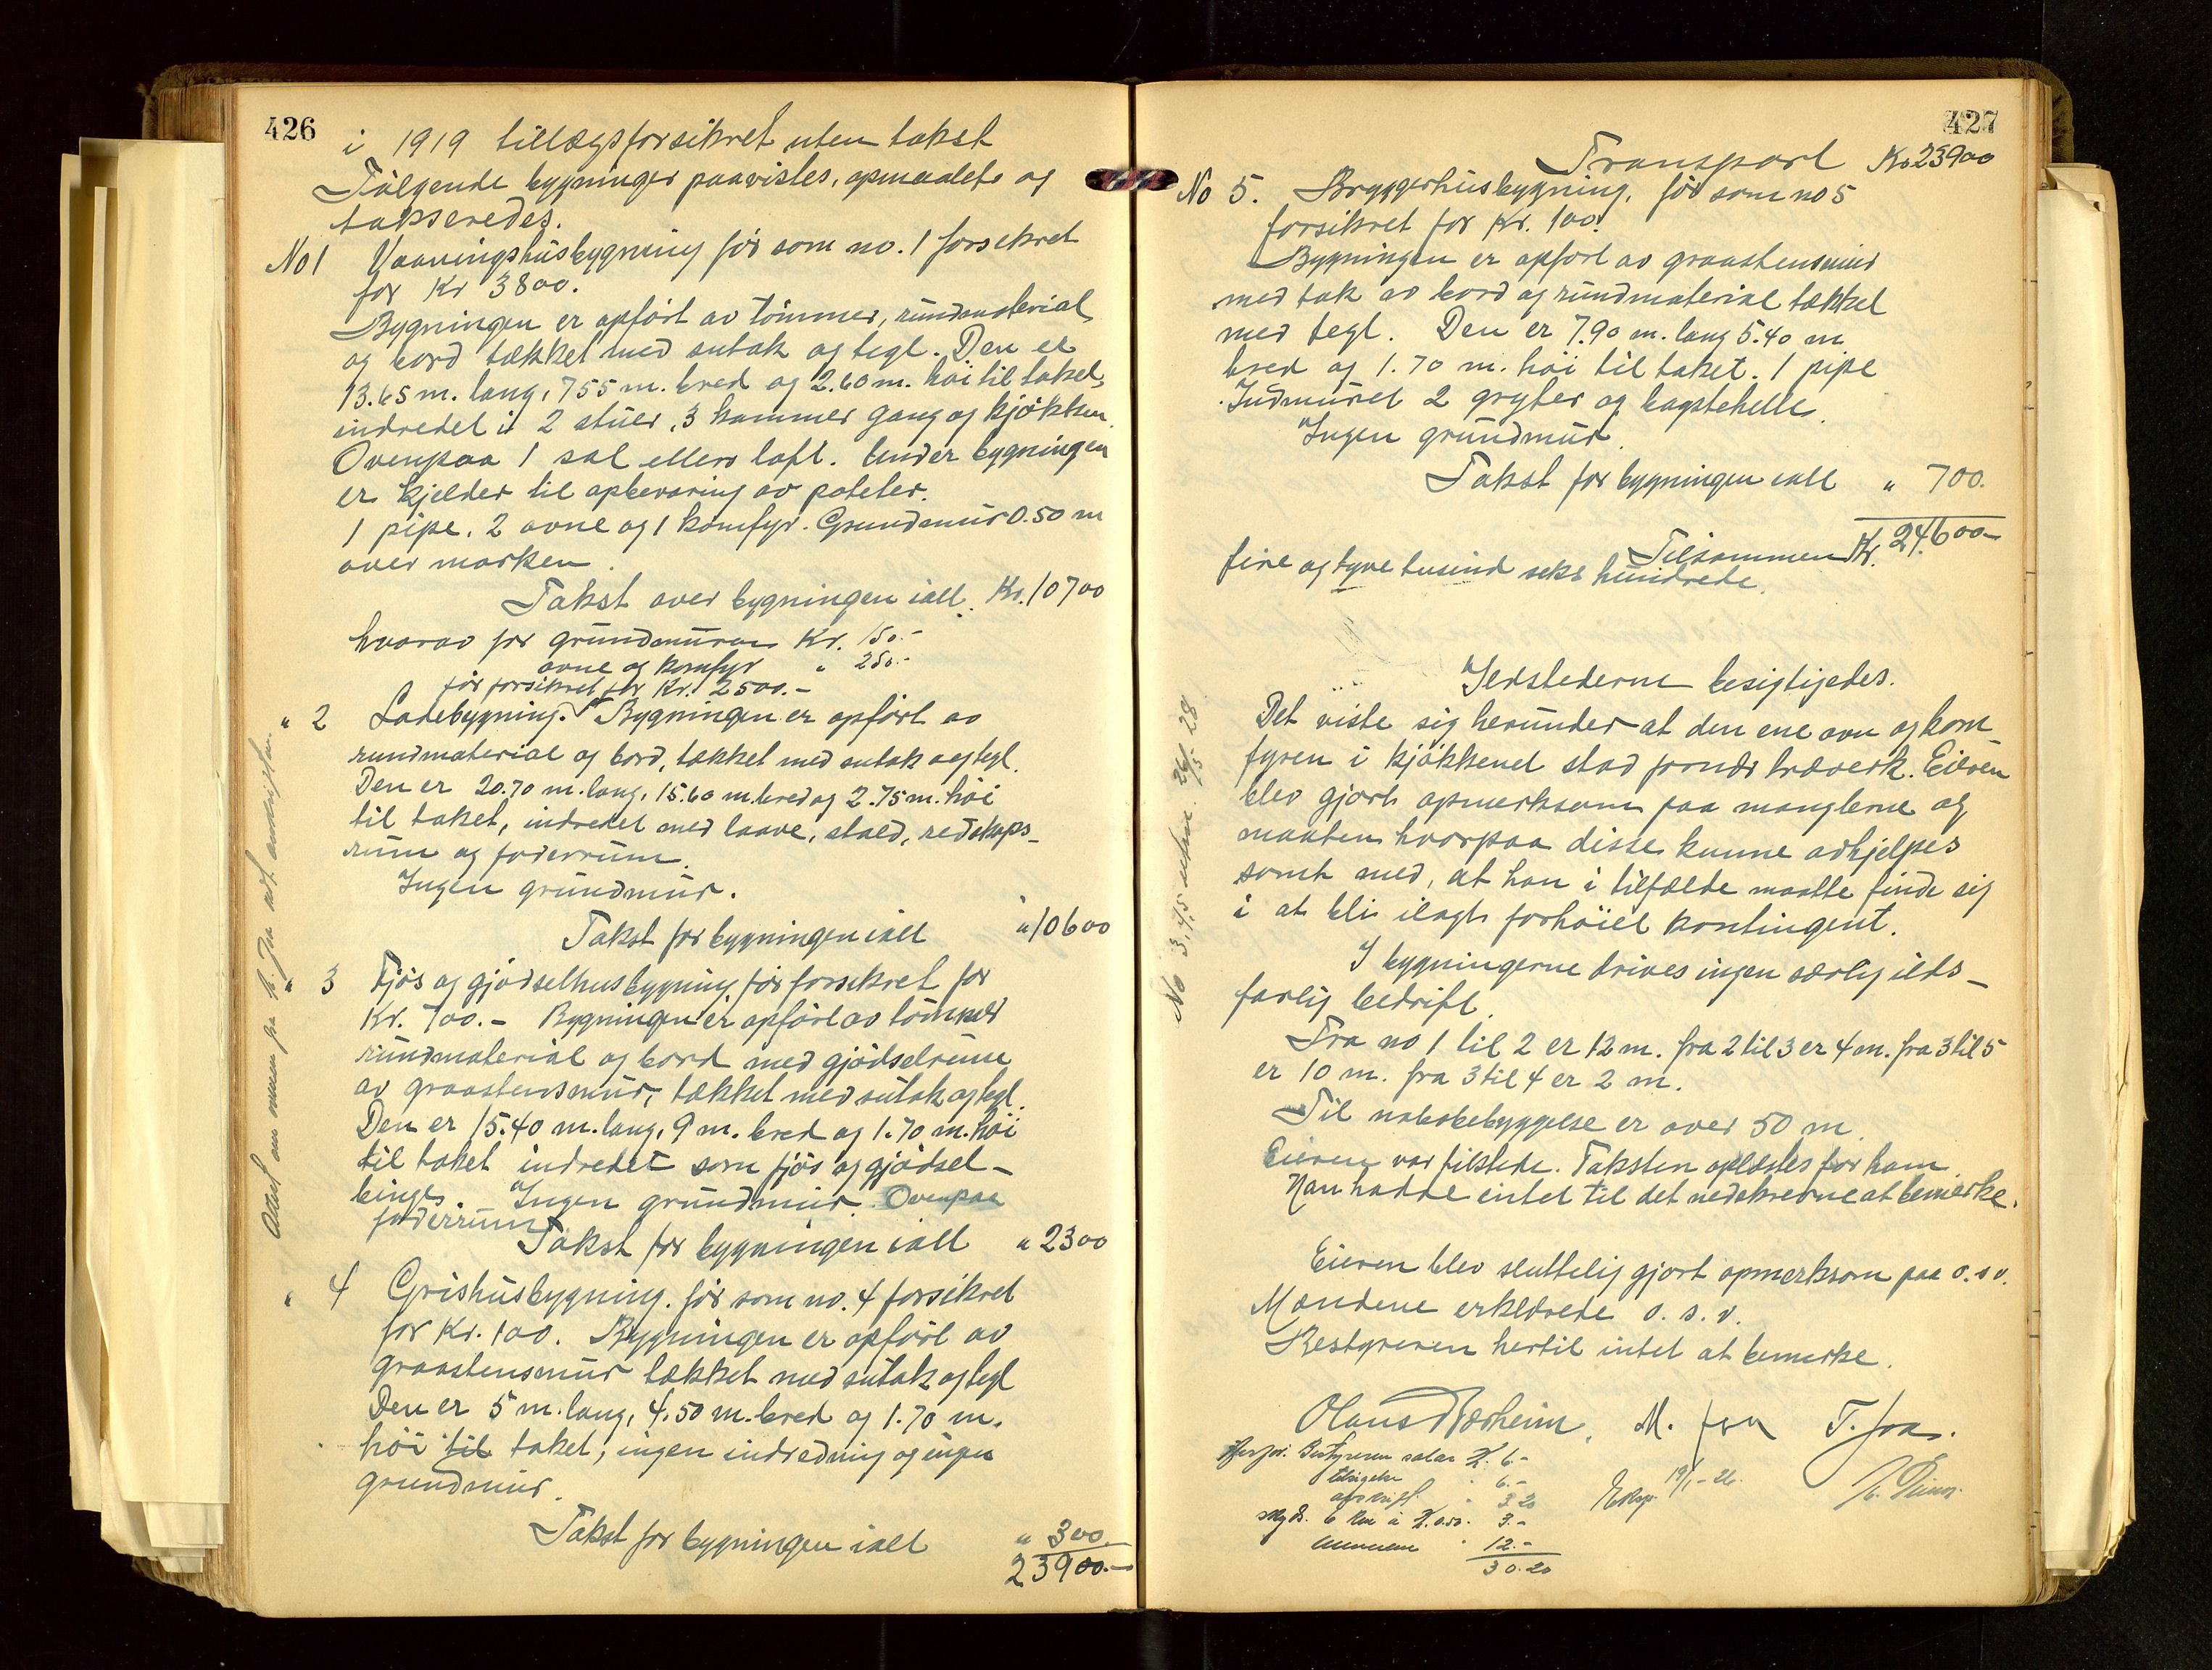 426
i 1919 tillægsforsikret uten takst
Følgende bygninger paavistes, opmaaltes og
takseredes.
No 1 Vaaningshusbygning før som no. 1 forsikret
for Kr 3800.
Bygningen er opført av tømmer, rundmaterial
og bord tækket med sutak og tegl. Den er
13.65 m. lang, 7.55 m. bred og 2.60 m. høi til taket,
indredet i 2 stuer, 3 kammer gang og kjøkken.
Ovenpaa 1 sal ellers loft. Under bygningen
er kjelder til opbevaring av poteter.
1 pipe. 2 ovne og 1 komfyr. Grundmur 0.50 m
over marken.
Takst over bygningen ialt Kr. 10700
hvorav for grundmuren Kr. 150.-
ovne og komfyr " 250.-
før forsikret for Kr. 2500.-
" 2 Ladebygning. Bygningen er opført av
rundmaterial og bord, tækket med sutak og tegl.
Den er 20.70 m. lang, 15.60 m. bred og 2.75 m. høi
til taket, indredet med laave, stald, redskaps-
rum og foderrum.
Ingen grundmur.
Takst for bygningen ialt " 10600
" 3 Fjøs og gjødselhusbygning før forsikret for
Kr. 700.- Bygningen er opført av tømmer
rundmaterial og bord med gjødselrum
av graastensmur, tækket med sutak og tegl.
Den er 15.40 m. lang, 9 m. bred og 1.70 m. høi
til taket indredet som fjøs og gjødsel-
binge. Ingen grundmur. Ovenpaa
foderrum
Takst for bygningen ialt " 2300
" 4 Grishusbygning. før som no. 4 forsikret
for Kr. 100. Bygningen er opført av
graastensmur tækket med sutak og tegl
Den er 5 m. lang, 4.50 m. bred og 1.70 m.
høi til taket, ingen indredning og ingen
grundmur.
Takst for bygningen ialt " 300.-
23900.-
427
Transport Kr. 23900
No 5. Bryggerhusbygning, før som no 5
forsikret for Kr. 100.
Bygningen er opført av graastensmur
med tak av bord og rundmaterial tækket
med tegl. Den er 7.90 m. lang 5.40 m
bred og 1.70 m. høi til taket. 1 pipe
Indmuret 2 gryter og bagstehelle.
Ingen grundmur.
Takst for bygningen ialt " 700.
Tilsammen Kr. 24600-
fire og tyve tusind seks hundrede.
Ildstederne besigtigedes.
Det viste sig herunder at den ene ovn og kom
fyren i kjøkkenet stod for nær træverk. Eieren
blev gjort opmerksom paa manglerne og
maaten hvorpaa disse kunne avhjelpes
samt med, at han i tilfælde maatte finde sig
i at bli ilagt forhøiet kontingent.
I bygningerne drives ingen særlig ilds-
farlig bedrift.
Fra no 1 til 2 er 12 m. fra 2 til 3 er 4 m. fra 3 til 5
er 10 m. fra 3 til 4 er 2 m.
Til nabobebyggelse er over 50 m.
Eieren var tilstede. Taksten oplæstes for ham.
Han hadde intet til det nedskrevne at bemerke.
Eieren blev sluttelig gjort opmerksom paa o.s.v.
Mændene erklærede o. s. v.
Bestyreren hertil intet at bemerke.
Olaus Nærheim. M. Joa T. Joa.
Bestyreren salær K. 6-
6.-
avskrift " 3.20
skyds. 6 km à K. 0.50. 3.-
" 12.-
30.20
19/1-26.
No 3, 4, 5 26/5-28